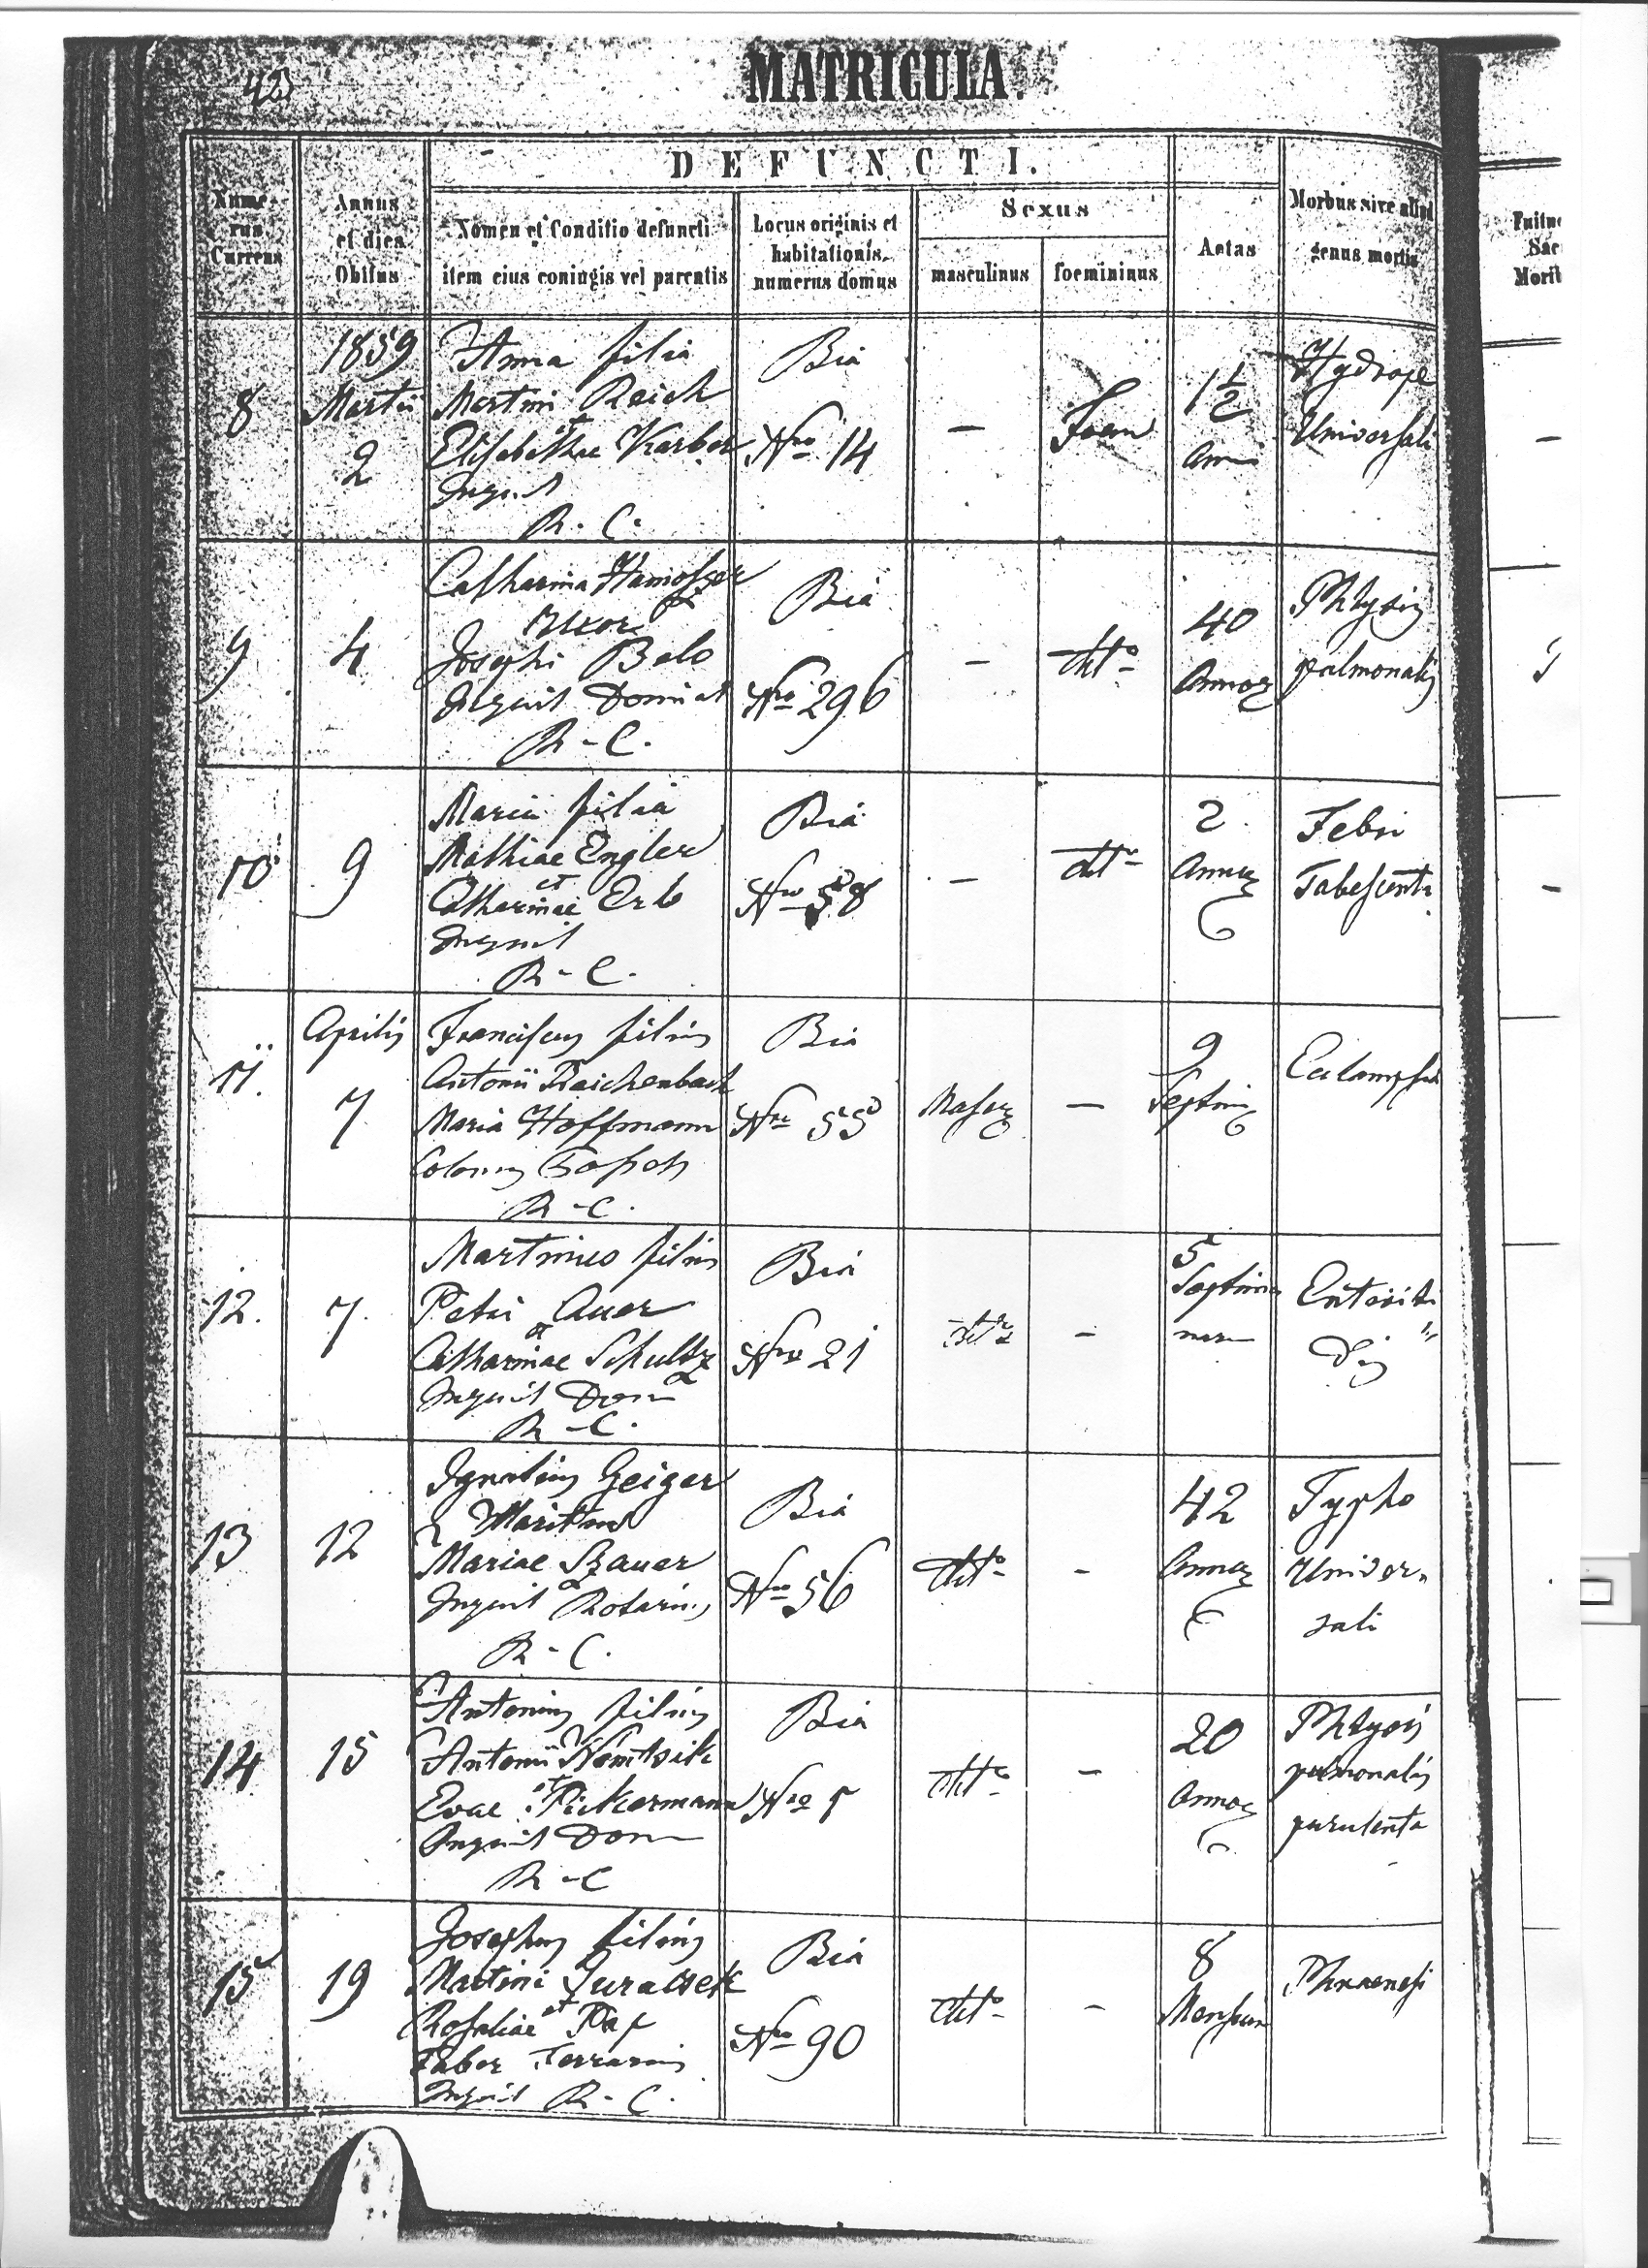 42
MATRICULA.
DEFUNCTI.
Nume-
rus
Currens
Annus
et dies
Obitus
Nomen et Conditio defuncti
item eius coniugis vel parentis
Locus originis et
habitationis,
numerus domus
Sexus
masculinus
foemininus
Aetas
Morbus sive aliud
genus mortis
8
1859
Martii
2
Anna filia
Martini Reich
et
Elisabethae Karber
Inquil
R. C.
Bia
Nro 14
-
Foem
1 1/2
Ann
Hydrope
Universali
9
4
Catharina
Uxor
Josephi Belo
Inquil Domin
R-C.
Bia
Nro 296
-
dtto
40
Annor
Phtysis
pulmonalis
10
9
Maria filia
Mathiae Engler
et
Catharinae Erb
Inquil
R-C.
Bia
Nro 58
-
dtto
2
Annor
Febri
Tabescenti
11.
Aprilis
7
Franciscus filius
Antonii Raichenbach
Maria Hoffmann
Colonus
R-C.
Bia
Nro 55
Mascr
-
9
Septim
Eclampsia
12.
7.
Martinus filius
Petri Auer
et
Catharinae Schultz
Inquil Dom
R-C.
Bia
Nro 21
dtto
-
5
Septima
nar
13
12
Ignatius Geiger
Maritus
Mariae Szauer
Inquil Rotarius
R-C.
Bia
Nro 56
dtto
-
42
Annor
Typho
Univer-
sali
14
15
Antonius filius
Antonii Nemtsik
et
Evae Pickermann
Inquil Dom
R-C
Bia
Nro
dtto
-
20
Annor
Phtysis
pulmonalis
purulenta
15
19
Josephus filius
Martini Juratsek
et
Rosaliae Pap
Faber Ferrarius
Inquil R-C.
Bia
Nro 90
dtto
-
8
Mensium
Phraenesi